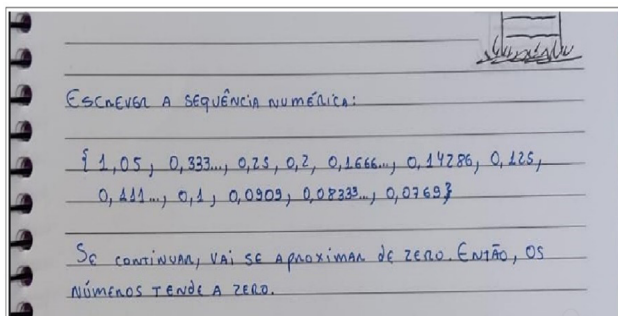 ESCREVER A SEQUÊNCIA NUMÉRICA:
{ 1,05, 0,333..., 0,25, 0,2, 0,1666..., 0,14286, 0,125,
0,111..., 0,1, 0,0909, 0,08333..., 0,0769}
SE CONTINUAR, VAI SE APROXIMAR DE ZERO. ENTÃO, OS
NÚMEROS TENDE A ZERO.